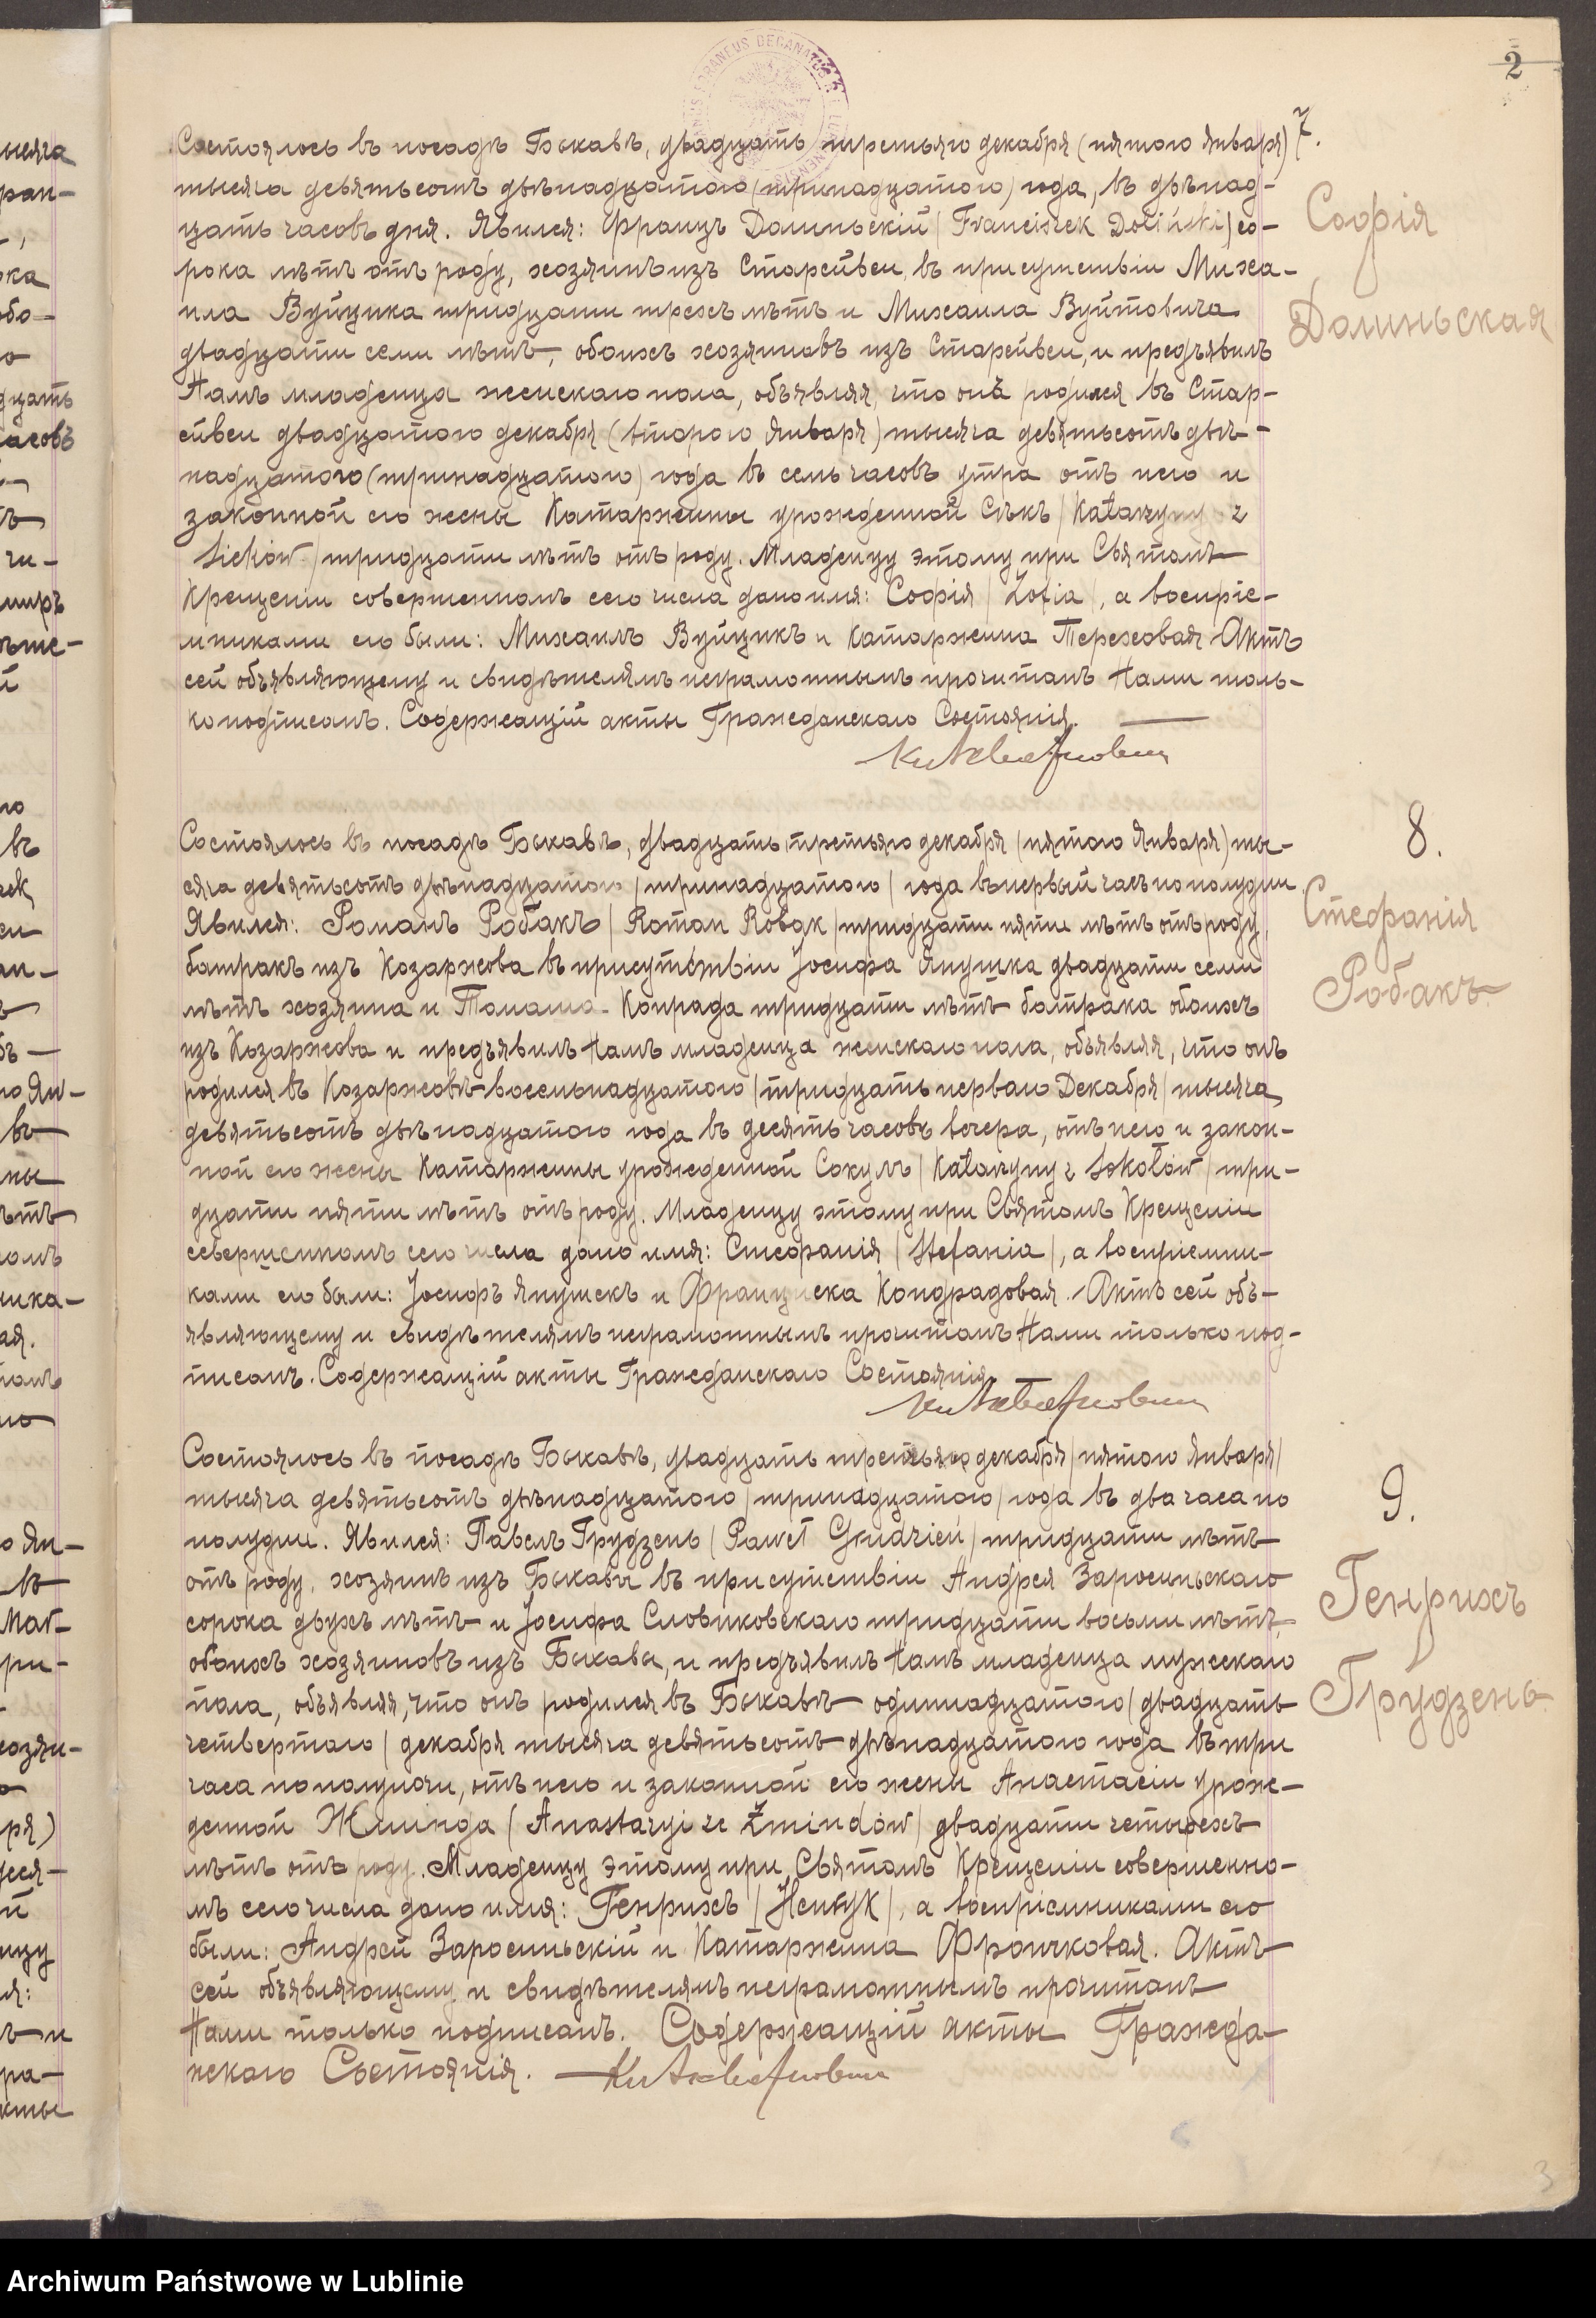 2
7.
Состоялось въ посадѣ Быкавѣ, двадцать третьяго декабря (пятого Января)
тысяча девятьсотъ двѣнадцатого (тринадцатого) года, въ двѣнад-
цать часовъ дня. Явился: Францъ Долиньскій (Franciszek Doliński) со-
рока лѣтъ отъ роду, хозяинъ изъ Старейвси, въ присутствіи Миха-
ила Вуйцика тридцати трехъ лѣтъ и Михаила Вуйтовича
двадцати семи лѣтъ, обоихъ хозяиновъ изъ Старейвси, и предъявилъ
Намъ младенца женскаго пола, объявляя, что онъ родился въ Стар-
ейвси двадцатого декабря (второго Января) тысяча девятьсотъ двѣ-
надцатого (тринадцатого) года въ семь часовъ утра отъ него и
законной его жены Катаржины урожденной Сѣкъ (Katarzyny z
Sieków) тридцати лѣтъ отъ роду. Младенцу этому при Святомъ
Крещеніи совершенномъ сего числа дано имя: Софія (Zofia), а воспріе-
мниками его были: Михаилъ Вуйцикъ и Катаржина Тереховая. Актъ
сей объявляющему и свидѣтелямъ неграмотнымъ прочитанъ Нами толь-
ко подписанъ. Содержащій акты Гражданскаго Состоянія.
Софія
Долиньская
8.
Состоялось въ посадѣ Быкавѣ, двадцать третьяго декабря (пятого Января) ты-
сяча девятьсотъ двѣнадцатого (тринадцатого) года въ первый часъ по полудни.
Явился: Романъ Робакъ (Roman Robak) тридцати пяти лѣтъ отъ роду,
батракъ изъ Козаржова въ присутствіи Іосифа Янушка двадцати семи
лѣтъ хозяина и Томаша Конрада тридцати лѣтъ батрака обоихъ
изъ Козаржова и предъявилъ Намъ младенца женскаго пола, объявляя, что онъ
родился въ Козаржовѣ восемьнадцатого (тридцать перваго Декабря) тысяча
девятьсотъ двѣнадцатого года въ десять часовъ вечера, отъ него и закон-
ной его жены Катаржины урожденной Сокулъ (Katarzyny z Sokołów) три-
дцати пяти лѣтъ отъ роду. Младенцу этому при Святомъ Крещеніи
совершенномъ сего числа дано имя: Стефанія (Stefania), а воспріемни-
ками его были: Іосифъ Янушекъ и Францишка Кондрадовая. Актъ сей объ-
являющему и свидѣтелямъ неграмотнымъ прочитанъ Нами только под-
писанъ. Содержащій акты Гражданскаго Состоянія
Стефанія
Робакъ.
9.
Состоялось въ посадѣ Быкавѣ, двадцать третьяго декабря (пятого Января)
тысяча девятьсотъ двѣнадцатого (тринадцатого) года въ два часа по
полудни. Явился: Павелъ Грудзень (Paweł Grudzień) тридцати лѣтъ
отъ роду, хозяинъ изъ Быкавы въ присутствіи Андрея Заросиньскаго
сорока двухъ лѣтъ и Іосифа Словиковскаго тридцати восьми лѣтъ,
обоихъ хозяиновъ изъ Быкавы, и предъявилъ Намъ младенца мужскаго
пола, объявляя, что онъ родился въ Быкавѣ одиннадцатого (двадцать
четвертого) декабря тысяча девятьсотъ двѣнадцатого года въ три
часа по полуночи, отъ него и законной его жены Анастасіи урож-
денной Жминда (Anastazyi ze Żmindów) двадцати четырехъ
лѣтъ отъ роду. Младенцу этому при Святомъ Крещеніи совершенно-
мъ сего числа дано имя: Генрихъ (Henryk), а воспріемниками его
были: Андрей Заросиньскій и Катаржина Франчковая. Актъ
сей объявляющему и свидѣтелямъ неграмотнымъ прочитанъ
Нами только подписанъ. Содержащій акты Гражда-
нскаго Состоянія.
Генрихъ
Грудзень.
3
Archiwum Państwowe w Lublinie